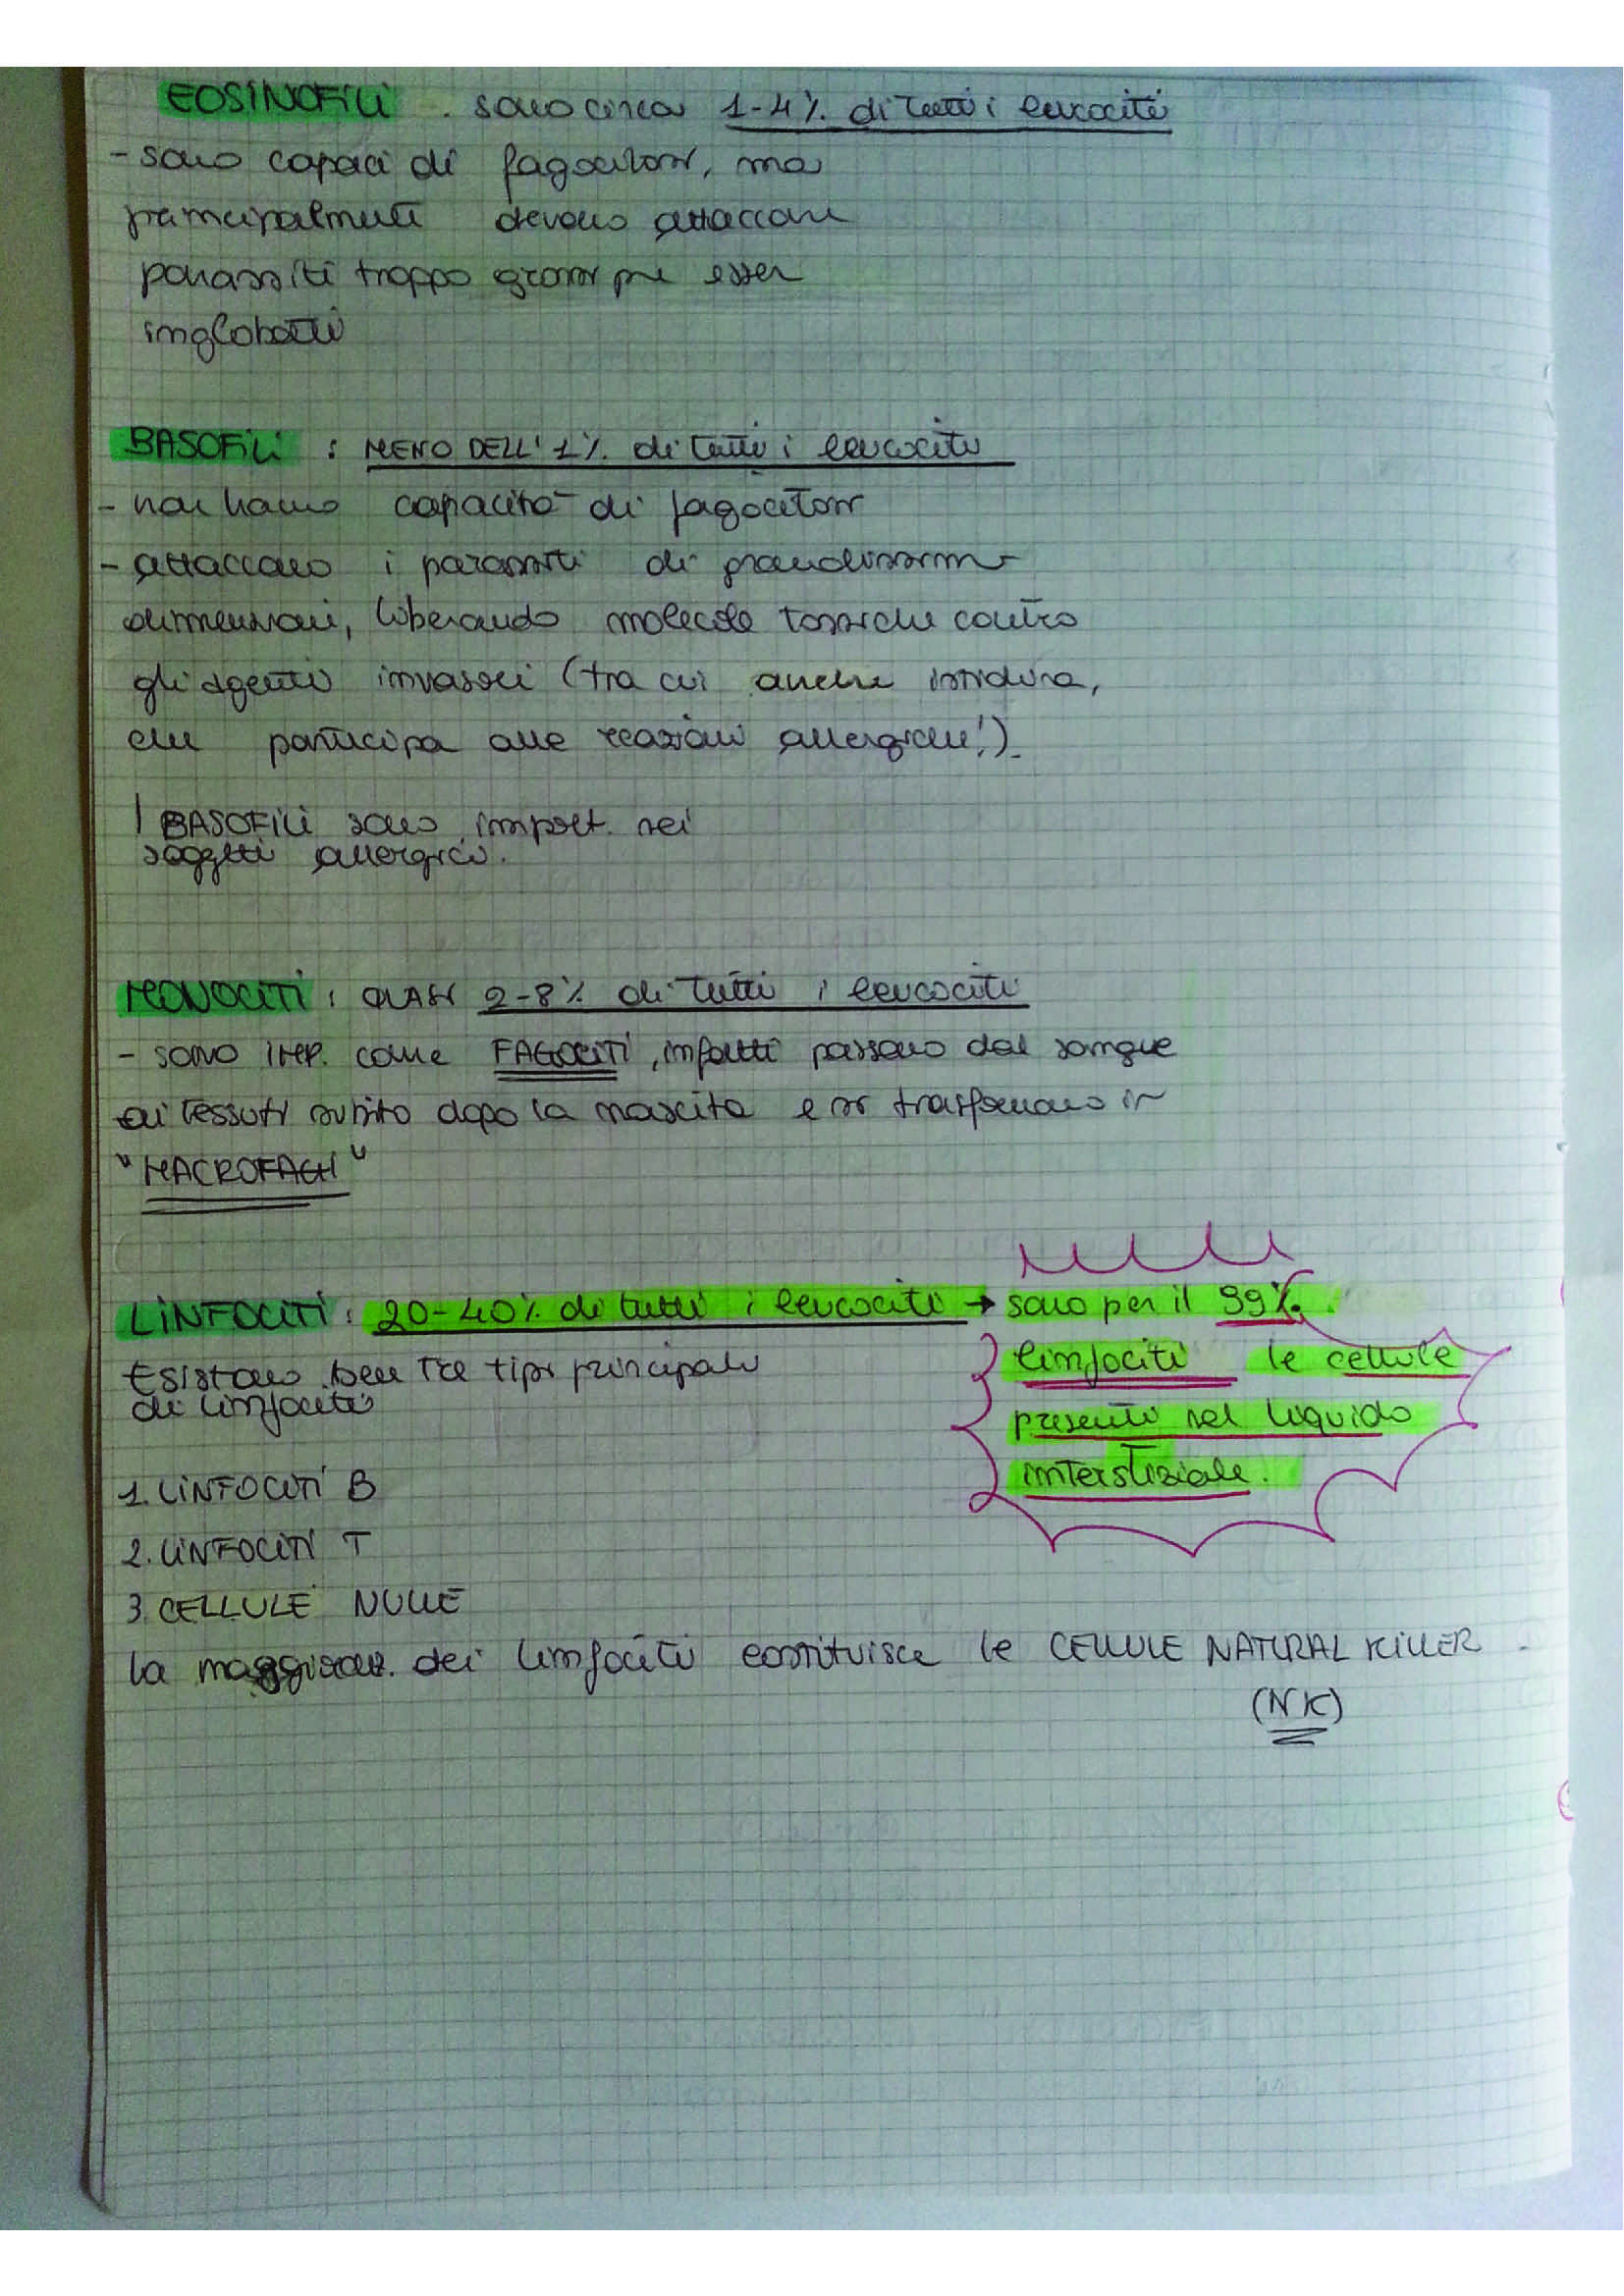 EOSINOFILI . sono circa 1-4% di tutti i leucociti
- sono capaci di fagocitosi, ma
principalmente devono attaccare
parassiti troppo grossi per esser
inglobati
BASOFILI : MENO DELL'1% di tutti i leucociti
- non hanno capacità di fagocitosi
- attaccano i parassiti di grandissime
dimensioni, liberando molecole tossiche contro
gli agenti invasori (tra cui anche istidina,
che partecipa alle reazioni allergiche!).
I BASOFILI sono import. nei
soggetti allergici.
MONOCITI : QUASI 2-8% di tutti i leucociti
- SONO IMP. come FAGOCITI, infatti passano dal sangue
ai tessuti subito dopo la nascita e si trasformano in
"MACROFAGI"
LINFOCITI : 20-40% di tutti i leucociti → sono per il 99%
linfociti le cellule
presenti nel liquido
interstiziale.
Esistono ben tre tipi principali
di linfociti
1. LINFOCITI B
2. LINFOCITI T
3. CELLULE NULLE
la maggioran. dei linfociti costituisce le CELLULE NATURAL KILLER
(NK)